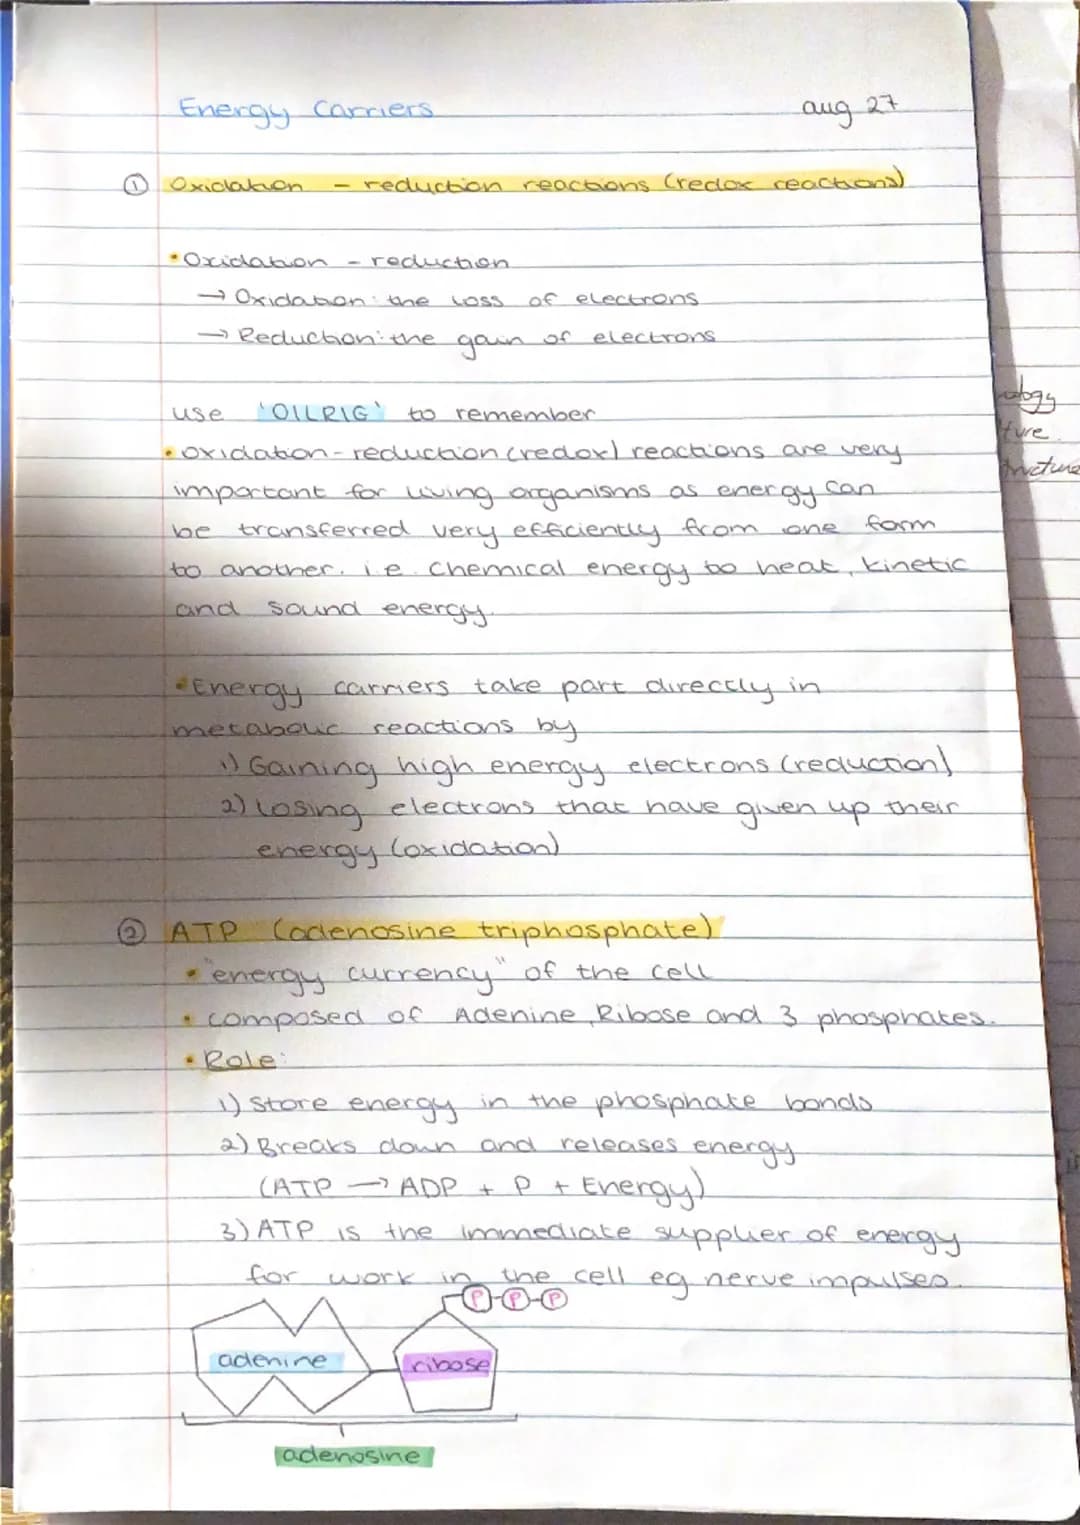 Energy Carriers
aug 27
① Oxidation - reduction reactions (redox reactions)
• Oxidation - reduction
→ Oxidation: the loss of electrons
→ Reduction: the gain of electrons
use 'OILRIG' to remember
• oxidation - reduction (redox) reactions are very
important for living organisms as energy can
be transferred very efficiently from one form
to another. i.e. chemical energy to heat, kinetic
and sound energy.
• Energy carriers take part directly in
metabolic reactions by
1) Gaining high energy electrons (reduction)
2) Losing electrons that have given up their
energy (oxidation)
② ATP (adenosine triphosphate)
• "energy currency" of the cell
• composed of Adenine, Ribose and 3 phosphates.
• Role:
1) Store energy in the phosphate bonds
2) Breaks down and releases energy
(ATP → ADP + P + Energy)
3) ATP is the immediate supplier of energy
for work in the cell eg nerve impulses.
P-P-P
adenine
ribose
adenosine